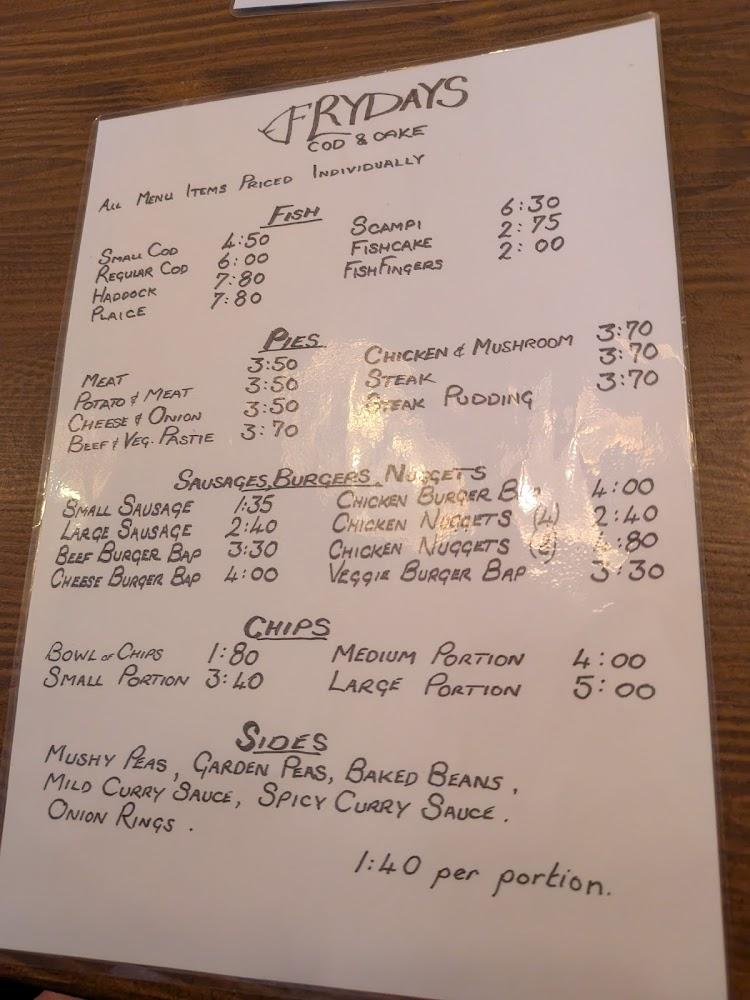 FRYDAYS
COD & CAKE
ALL MENU ITEMS PRICED INDIVIDUALLY
FISH
SMALL COD 4:50
REGULAR COD 6:00
HADDOCK 7:80
PLAICE 7:80
SCAMPI 6:30
FISHCAKE 2:75
FISHFINGERS 2:00
PIES
MEAT 3:50
POTATO & MEAT 3:50
CHEESE & ONION 3:50
BEEF & VEG. PASTIE 3:70
CHICKEN & MUSHROOM 3:70
STEAK 3:70
STEAK PUDDING 3:70
SAUSAGES, BURGERS, NUGGETS
SMALL SAUSAGE 1:35
LARGE SAUSAGE 2:40
BEEF BURGER BAP 3:30
CHEESE BURGER BAP 4:00
CHICKEN BURGER BAP 4:00
CHICKEN NUGGETS (4) 2:40
CHICKEN NUGGETS :80
VEGGIE BURGER BAP 3:30
CHIPS
BOWL OF CHIPS 1:80
SMALL PORTION 3:40
MEDIUM PORTION 4:00
LARGE PORTION 5:00
SIDES
MUSHY PEAS, GARDEN PEAS, BAKED BEANS,
MILD CURRY SAUCE, SPICY CURRY SAUCE.
ONION RINGS.
1:40 per portion.